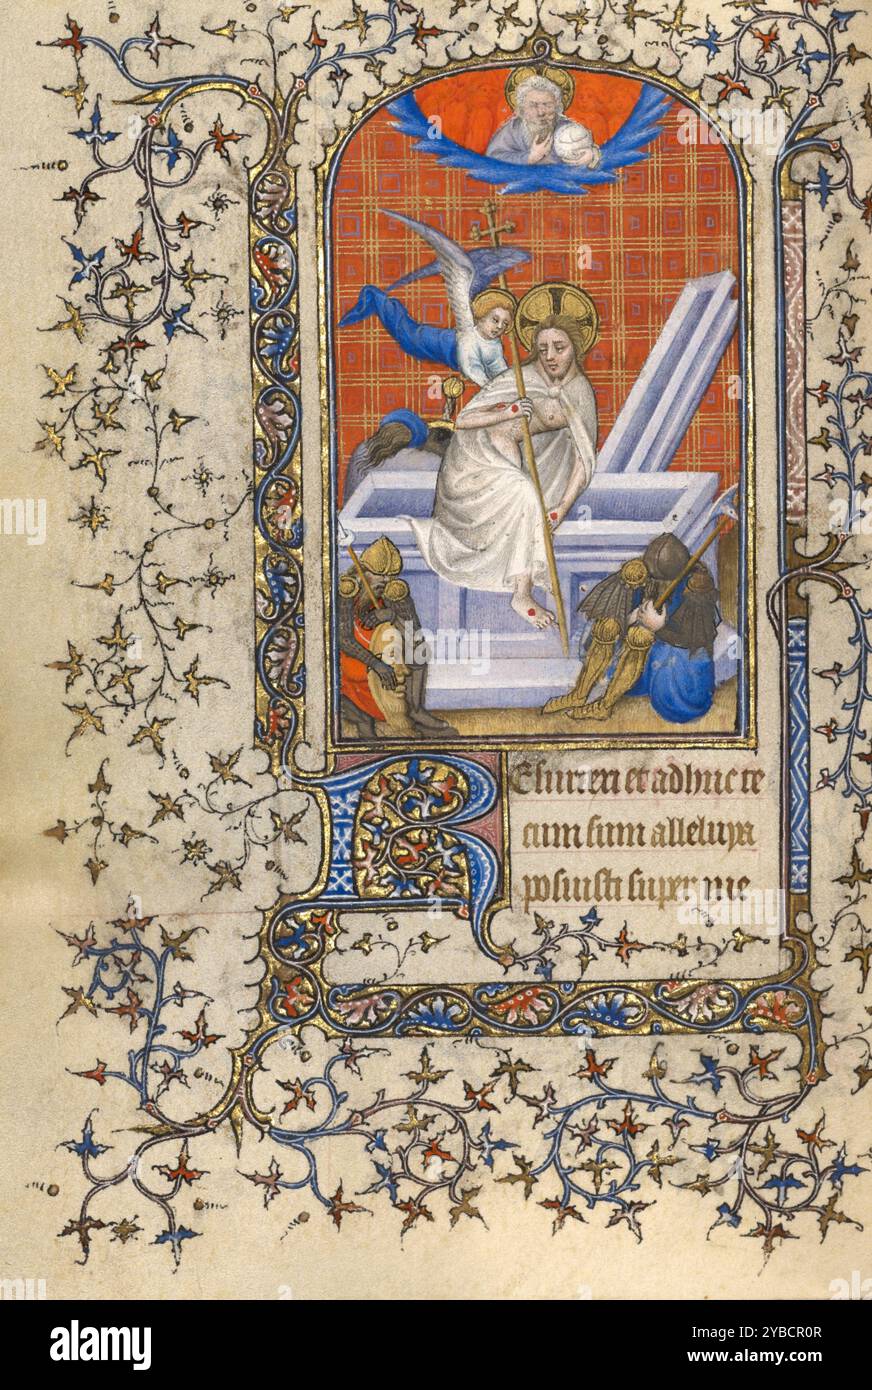 Resurrexi et adhuc te
cum sum alleluya
posuisti super me
alamy
Image ID: 2YBCR0R
www.alamy.com